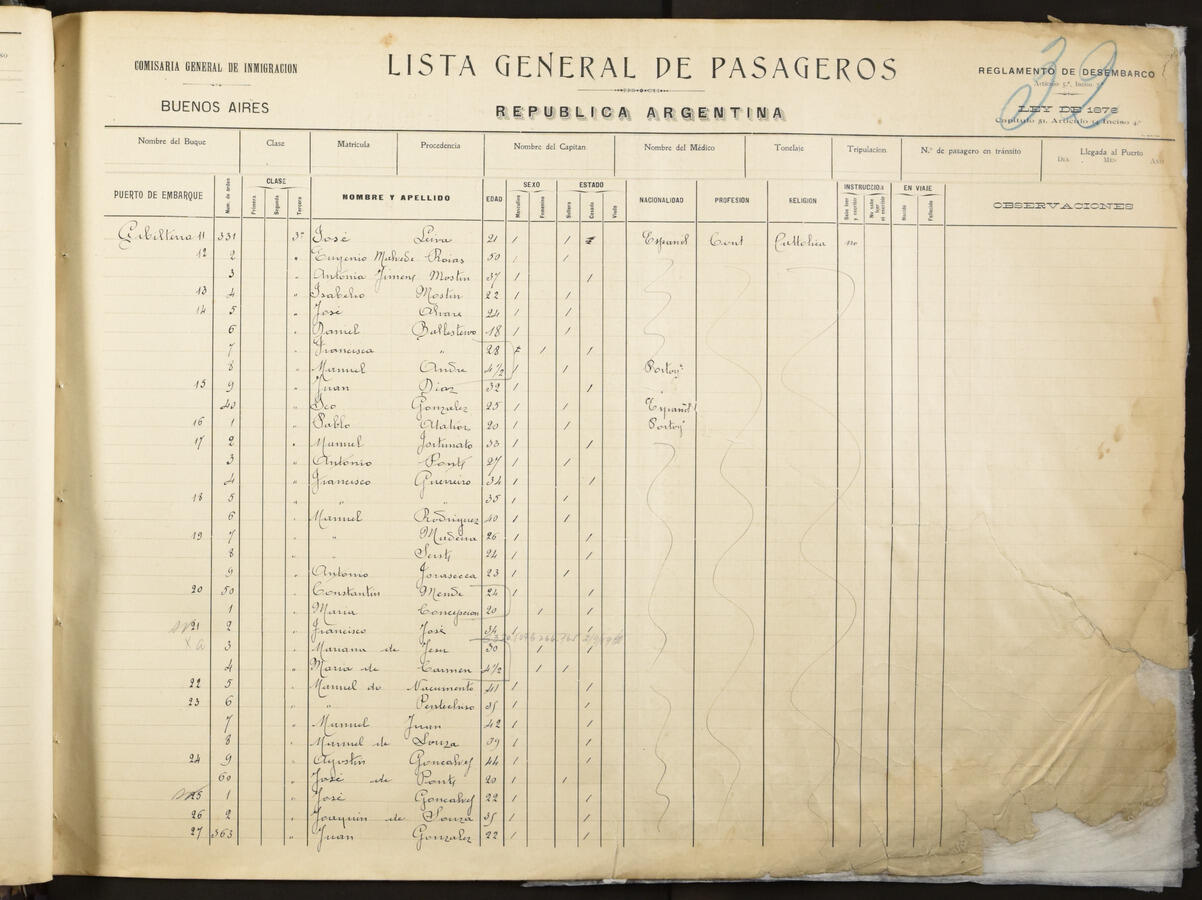 COMISARIA GENERAL DE INMIGRACION
BUENOS AIRES
LISTA GENERAL DE PASAGEROS
REPUBLICA ARGENTINA
REGLAMENTO DE DESEMBARCO
Artículo 5º, Inciso
LEY DE 1876
Capítulo 31, Artículo 14 Inciso 4º
39
Nombre del Buque Clase Matricula Procedencia Nombre del Capitan Nombre del Médico Tonelaje Tripulacion N.º de pasagero en tránsito Llegada al Puerto
DIA MES AÑO
PUERTO DE EMBARQUE Num. de orden CLASE Primera Segunda Tercera NOMBRE Y APELLIDO EDAD SEXO Masculino Femenino ESTADO Soltero Casado Viudo NACIONALIDAD PROFESIÓN RELIGION INSTRUCCION Sabe leer y escribir No sabe leer ni escribir EN VIAJE Nacido Fallecido OBSERVACIONES
11 331 3ª José Leiva 21 / / Español Catholica no
12 2 " Eugenio Rojas 50 / /
3 " Antonia Mostin 37 / /
13 4 " Mostin 22 / /
14 5 " José Alvare 24 / /
6 " Daniel Ballesteiro 18 / /
7 " Francisca " 28 / /
8 " Manuel Andre 4 1/2 / / Portog
15 9 " Juan Diaz 32 / /
40 " Fco Gonzalez 25 / / Español
16 1 " Pablo 20 / / Portog
17 2 " Manuel Fortunato 33 / /
3 " Antonio Ponts 27 / /
4 " Francisco Guerreiro 34 / /
18 5 " " " 35 / /
6 " Manuel Rodriguez 40 / /
19 7 " " Madeira 26 / /
8 " " 24 / /
9 " Antonio 23 / /
20 50 " Constantin Mende 24 / /
1 " Maria Concepcion 20 / /
21 2 " Francisco José 34 / /
3 " Mariana de Jesu 30 / /
4 " Maria de Carmen 4 1/2 / /
22 5 " Manuel do Nacumento 41 / /
23 6 " " 35 / /
7 " Manuel Juan 42 / /
8 " Manuel de Souza 39 / /
24 9 " Agostin Goncalvez 44 / /
60 " José de Ponts 20 / /
25 1 " José Goncalvez 22 / /
26 2 " Joaquin de Souza 35 / /
27 363 " Juan Gonzalez 22 / /